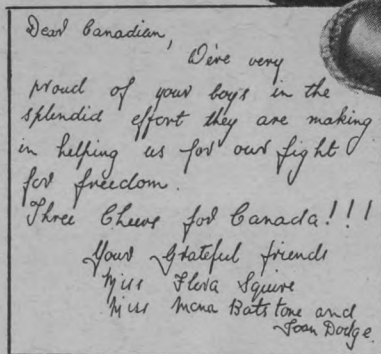 Dear Canadian,
We're very
proud of your boys in the
splendid effort they are making
in helping us for our fight
for freedom.
Three Cheers for Canada!!!
Your Grateful friends
Miss Flora Squire
Miss Mona Batstone and
Joan Dodge.